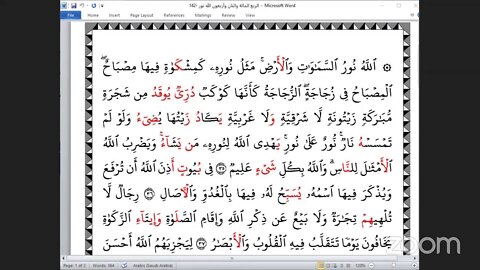 الربع المائة والثان وأربعون الله نور -142 - Microsoft Word
File Home Insert Page Layout References Mailings Review View
۞ ٱللَّهُ نُورُ ٱلسَّمَٰوَٰتِ وَٱلْأَرْضِۚ مَثَلُ نُورِهِۦ كَمِشْكَوٰةٍ فِيهَا مِصْبَاحٌۖ
ٱلْمِصْبَاحُ فِى زُجَاجَةٍۖ ٱلزُّجَاجَةُ كَأَنَّهَا كَوْكَبٌ دُرِّىٌّ يُوقَدُ مِن شَجَرَةٍ
مُّبَٰرَكَةٍ زَيْتُونَةٍ لَّا شَرْقِيَّةٍ وَلَا غَرْبِيَّةٍ يَكَادُ زَيْتُهَا يُضِىٓءُ وَلَوْ لَمْ
تَمْسَسْهُ نَارٌۚ نُّورٌ عَلَىٰ نُورٍۗ يَهْدِى ٱللَّهُ لِنُورِهِۦ مَن يَشَآءُۚ وَيَضْرِبُ ٱللَّهُ
ٱلْأَمْثَٰلَ لِلنَّاسِۗ وَٱللَّهُ بِكُلِّ شَىْءٍ عَلِيمٌ ۝٣٥ فِى بُيُوتٍ أَذِنَ ٱللَّهُ أَن تُرْفَعَ
وَيُذْكَرَ فِيهَا ٱسْمُهُۥ يُسَبِّحُ لَهُۥ فِيهَا بِٱلْغُدُوِّ وَٱلْءَاصَالِ ۝٣٦ رِجَالٌ لَّا
تُلْهِيهِمْ تِجَٰرَةٌ وَلَا بَيْعٌ عَن ذِكْرِ ٱللَّهِ وَإِقَامِ ٱلصَّلَوٰةِ وَإِيتَآءِ ٱلزَّكَوٰةِۙ
يَخَافُونَ يَوْمًا تَتَقَلَّبُ فِيهِ ٱلْقُلُوبُ وَٱلْأَبْصَٰرُ ۝٣٧ لِيَجْزِيَهُمُ ٱللَّهُ أَحْسَنَ
zoom
Page: 1 of 2 Words: 384 Arabic (Saudi Arabia) 120%